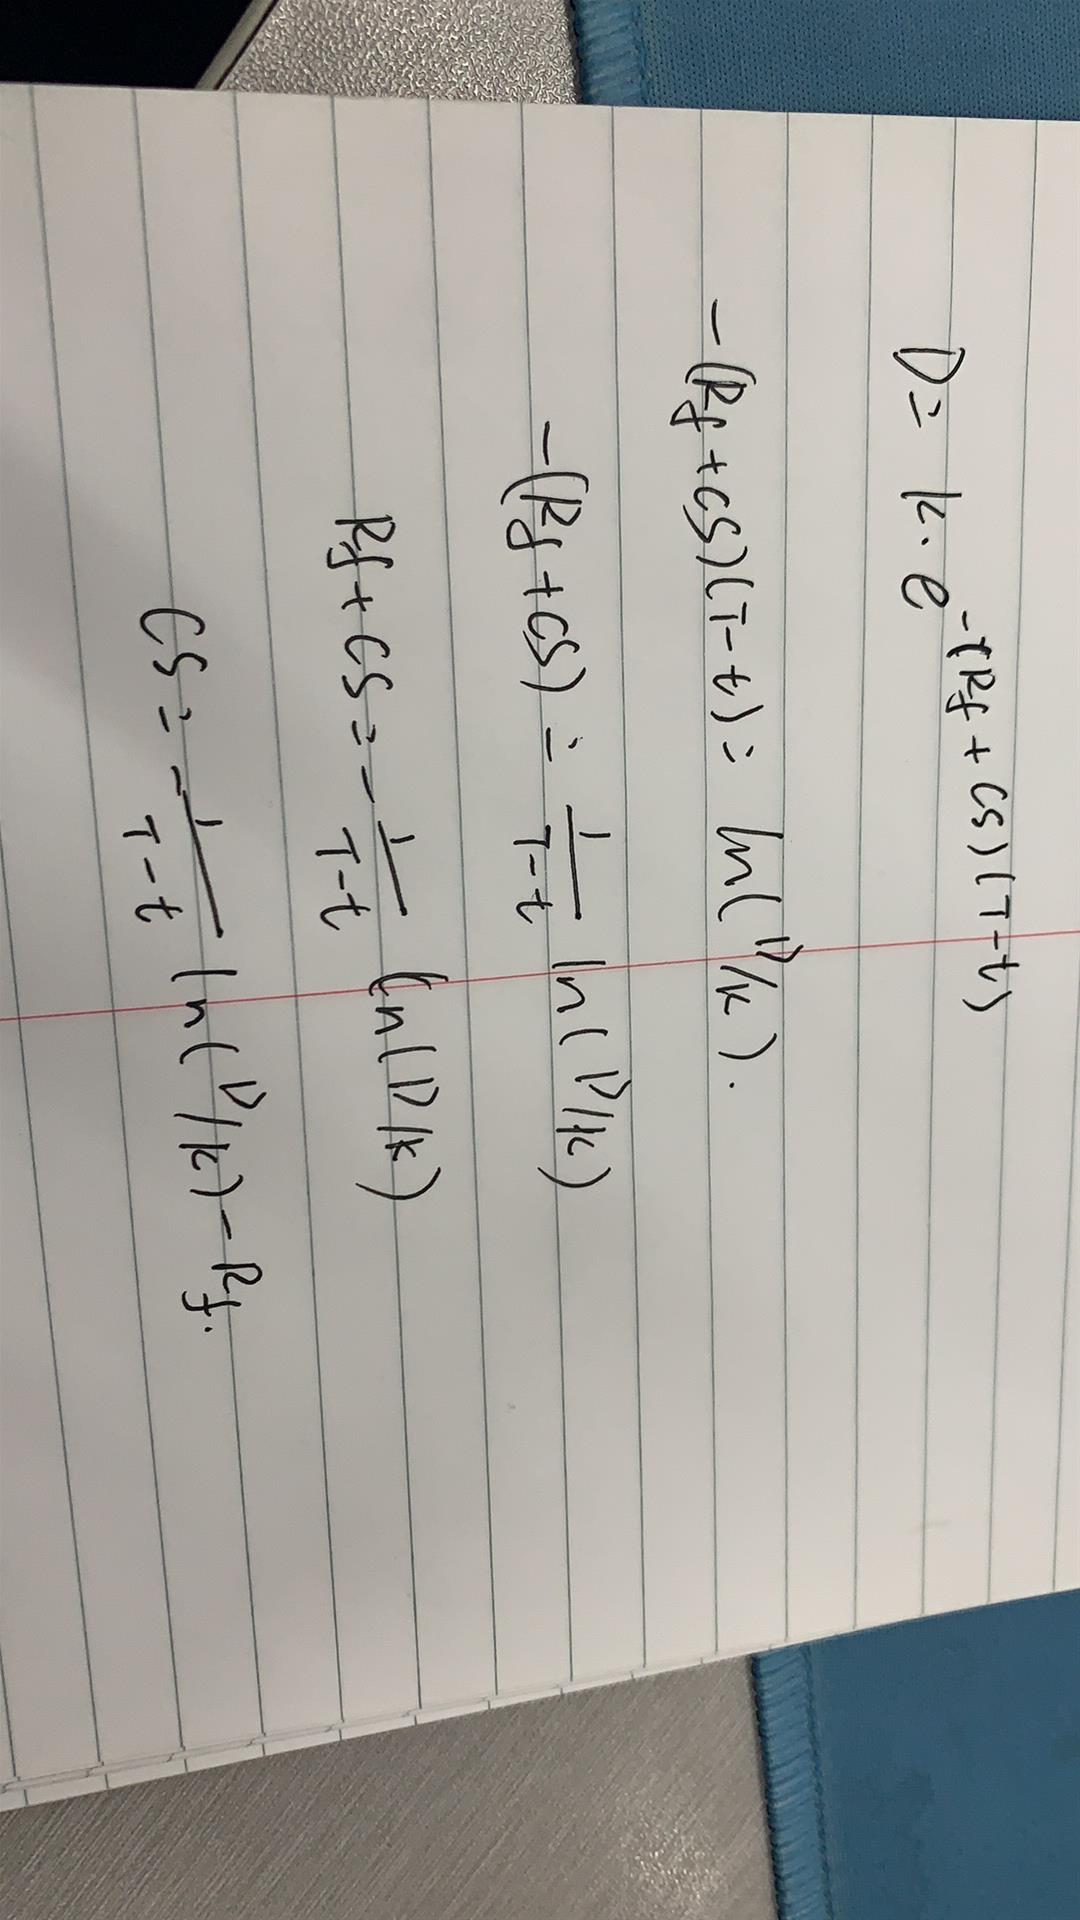 D = k · e^{-(Rf + CS)(T-t)}
-(Rf + CS)(T-t) = ln(D/k).
-(Rf + CS) = \frac{1}{T-t} ln(D/k)
Rf + CS = -\frac{1}{T-t} ln(D/k)
CS = -\frac{1}{T-t} ln(D/k) - Rf.